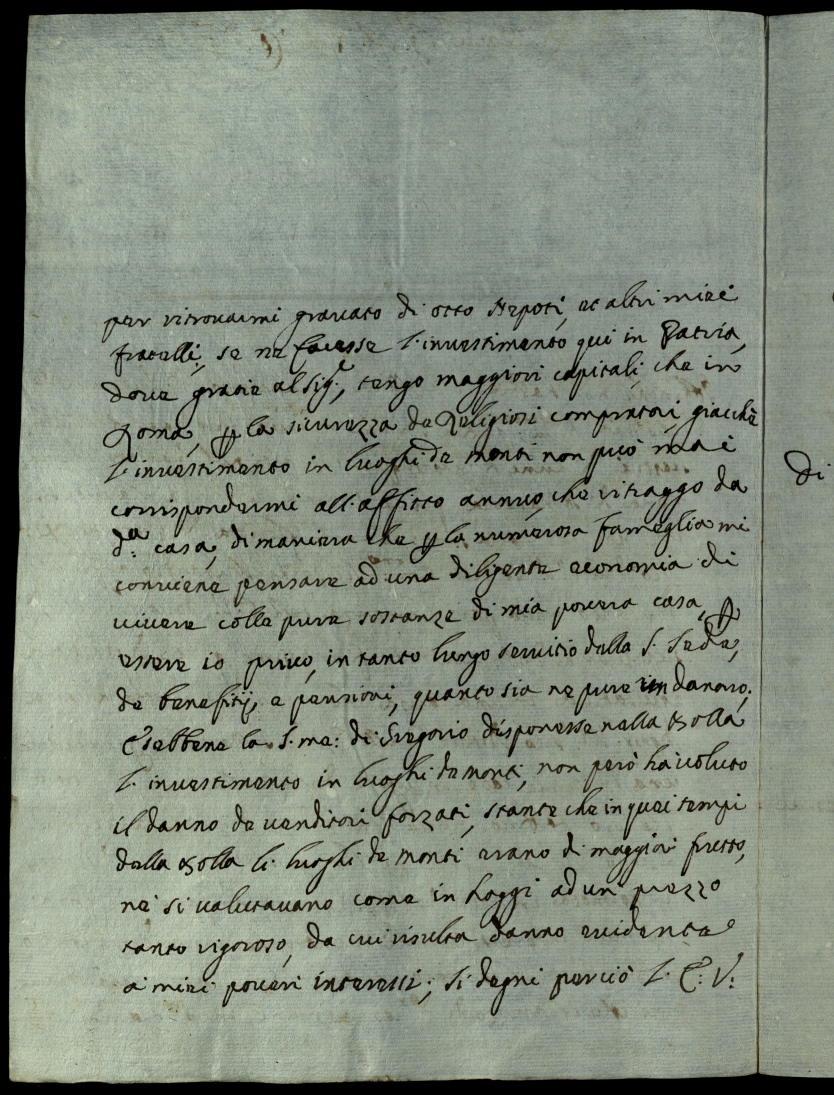 per ritrovarmi gravato di otto Nepoti, et altri miei
fratelli, se ne facesse l'investimento qui in Patria,
dove gratie al Sig.re, tengo maggiori capitali, che in
Roma, p la sicurezza de Religiosi compratori, giacchè
l'investimento in luoghi de monti non può mai
corrispondermi all'affitto annuo, che ritraggo da
d.a casa, di maniera che p la numerosa fameglia mi
conviene pensare ad una diligente economia di
vivere colle pure sostanze di mia povera casa, p
essere io privo, in tanto lungo servitio della S. Sede,
de benefitij, e pensioni, quanto sia ne pure un danaro.
E sebbene la S. me: di Gregorio disponesse nella Bolla
l'investimento in luoghi de monti, non però hà voluto
il danno de venditori forzati, stante che in quei tempi
della Bolla li luoghi de monti erano di maggior frutto,
nè si valutavano come in hoggi ad un prezzo
tanto rigoroso, da cui risulta danno evidente
a miei poveri interessi; si degni perciò l'E: V:
di